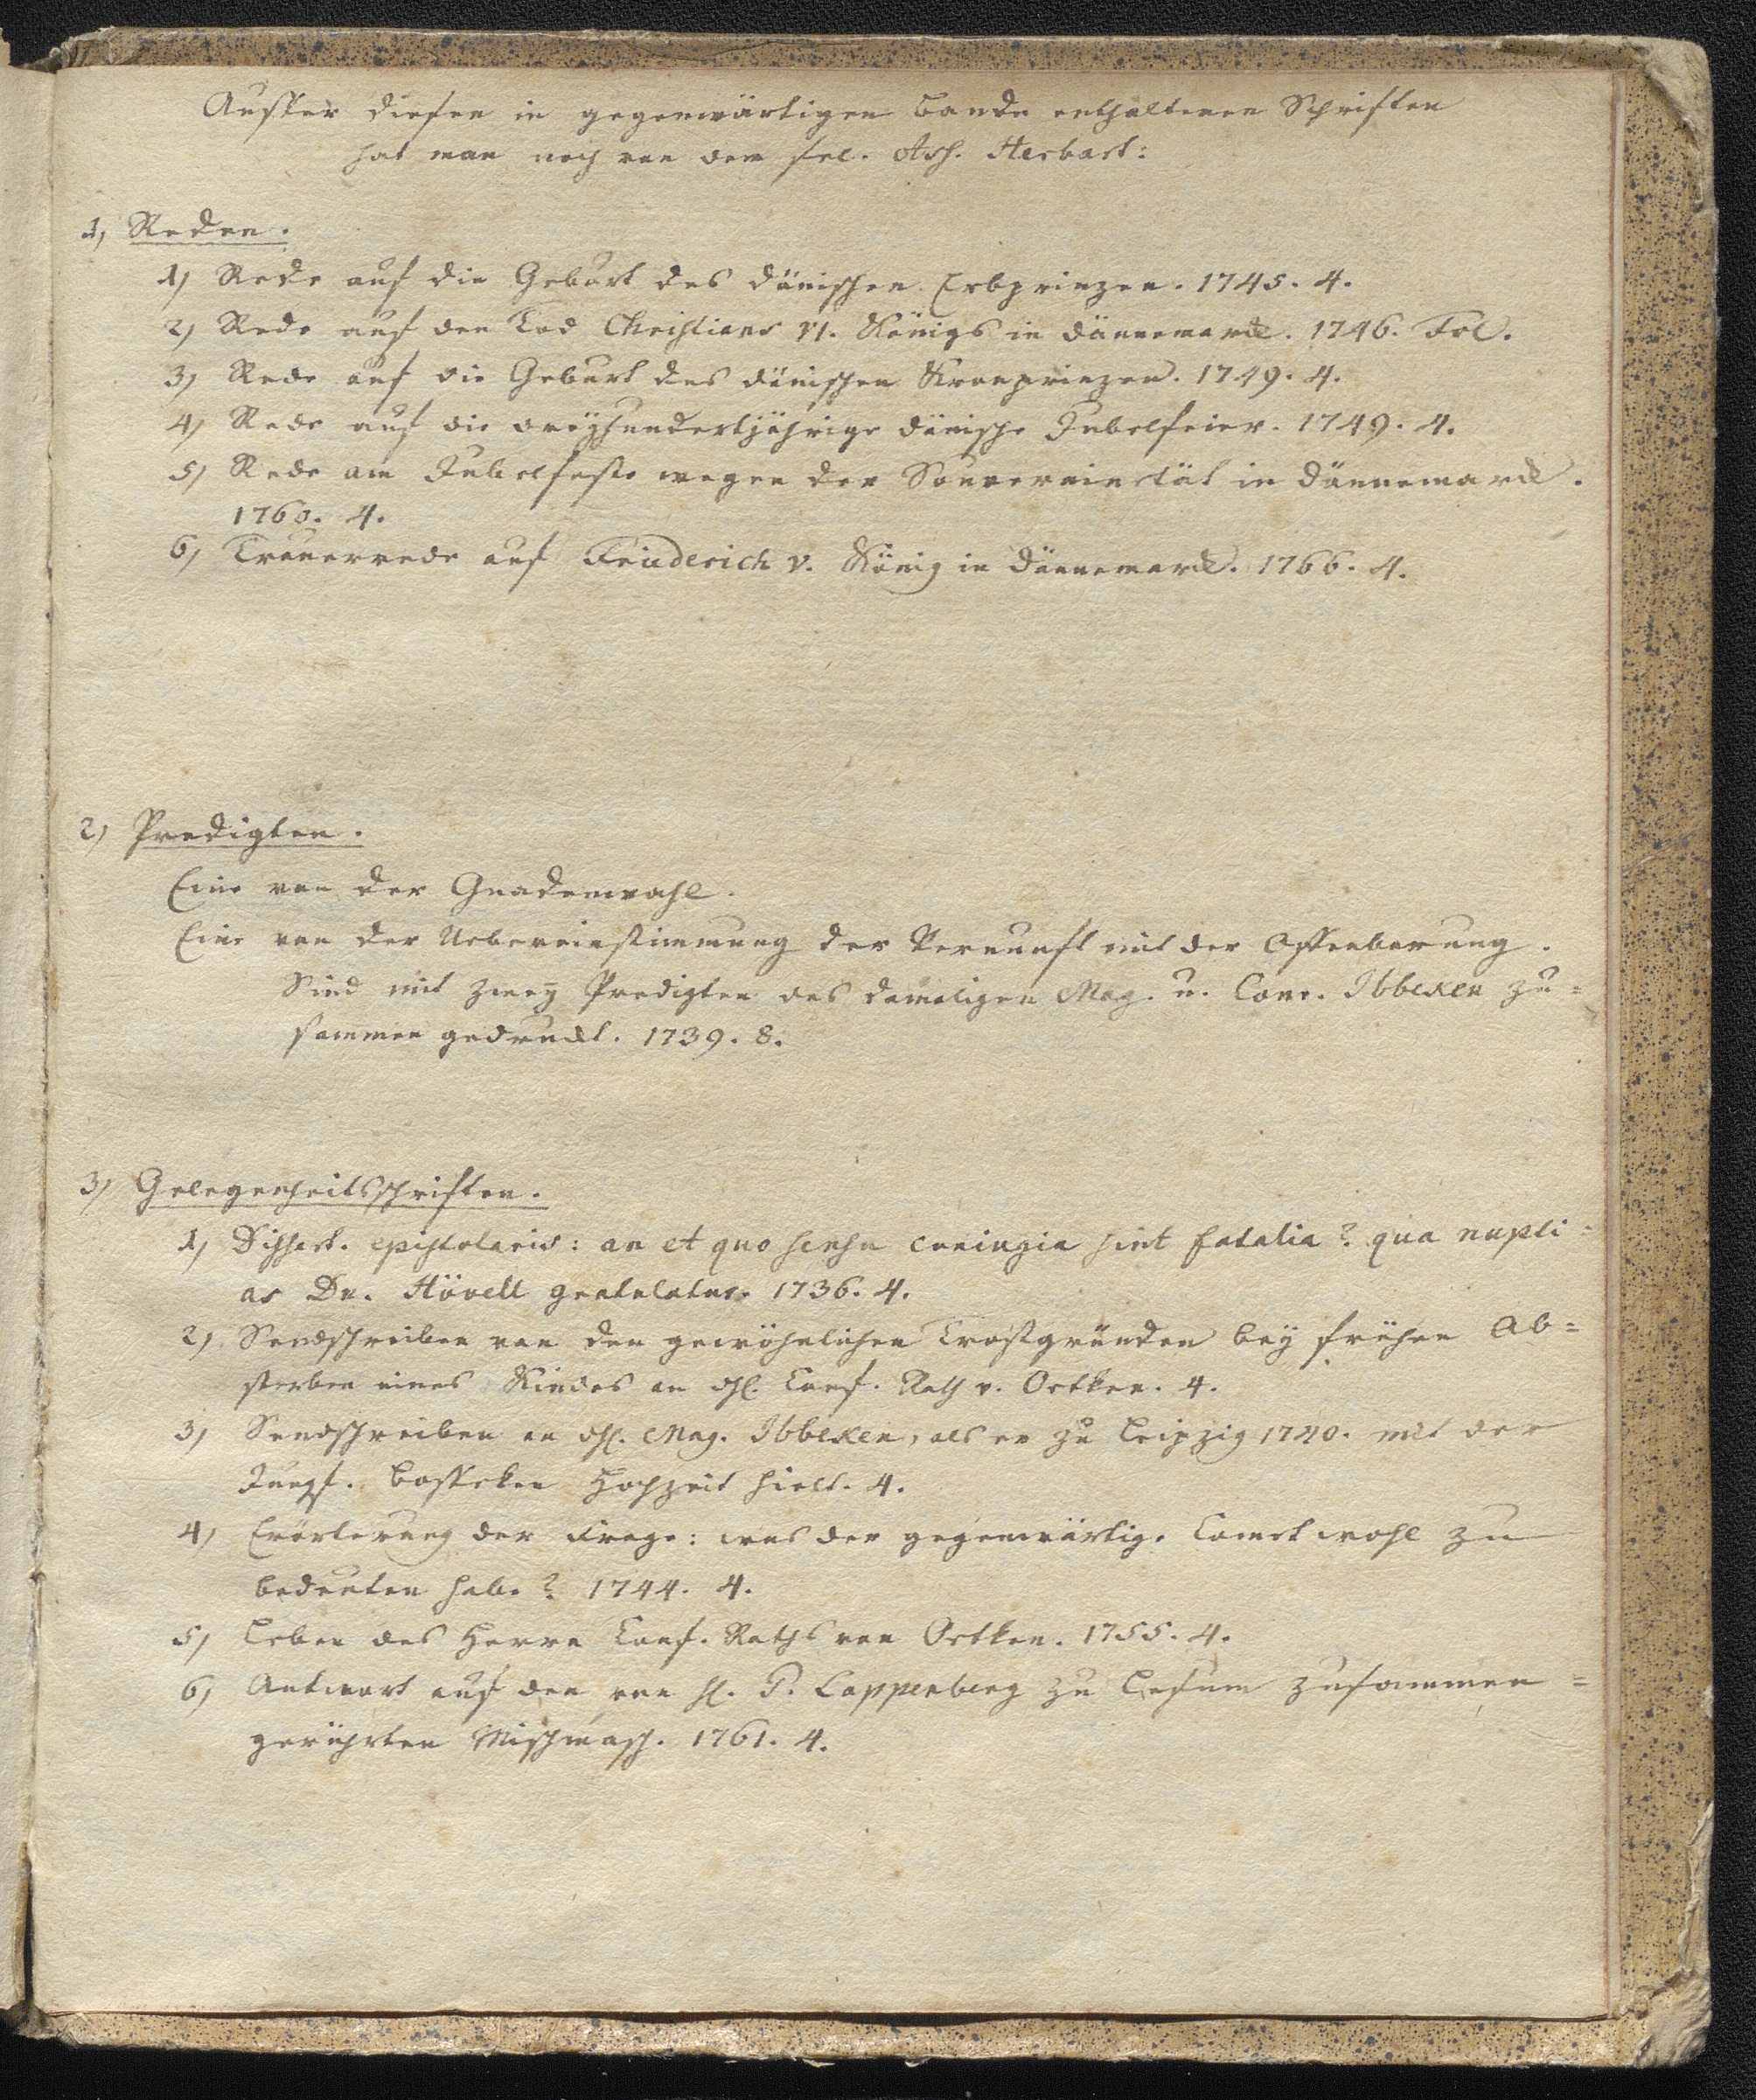 Ausser diesen in gegenwärtigen Bande enthaltenen Schriften
hat man noch von dem sel. Ass. Herbart:
1) Reden.
1) Rede auf die Geburt des dänischen Erbprinzen. 1745. 4.
2) Rede auf den Tod Christians VI. Königs in Dännemarck. 1746. Fol.
3) Rede auf die Geburt des dänischen Kronprinzen. 1749. 4.
4) Rede auf die dreyhundertjährige dänische Jubelfeier. 1749. 4.
5) Rede am Jubelfeste wegen der Souverainetät in Dännemarck.
1760. 4.
6) Trauerrede auf Friederich V. König in Dännemarck. 1766. 4.
2) Predigten.
Eine von der Gnadenwahl.
Eine von der Uebereinstimmung der Vernunft mit der Offenbarung.
Sind mit zwey Predigten des damaligen Mag. u. Conr. Ibbeken zu=
sammen gedruckt. 1739. 8.
3) Gelegenheitsschriften.
1) Dissert. epistolaris: an et quo sensu coniugia sint fatalia? qua nupti=
as Dn. Hövell gratulatur. 1736. 4.
2) Sendschreiben von den gewöhnlichen Trostgründen bey frühen Ab=
sterben eines Kindes an H. Conf. Rath v. Oetken. 4.
3) Sendschreiben an H. Mag. Ibbeken, als er zu Leipzig 1740. mit der
Jungf. Bosseken Hochzeit hielt. 4.
4) Erörterung der Frage: was der gegenwärtige Comet wohl zu
bedeuten habe? 1744. 4.
5) Leben des Herrn Conf. Raths von Oetken. 1755. 4.
6) Antwort auf den von H. P. Lappenberg zu Lesum zusammen=
gerührten Mischmasch. 1761. 4.